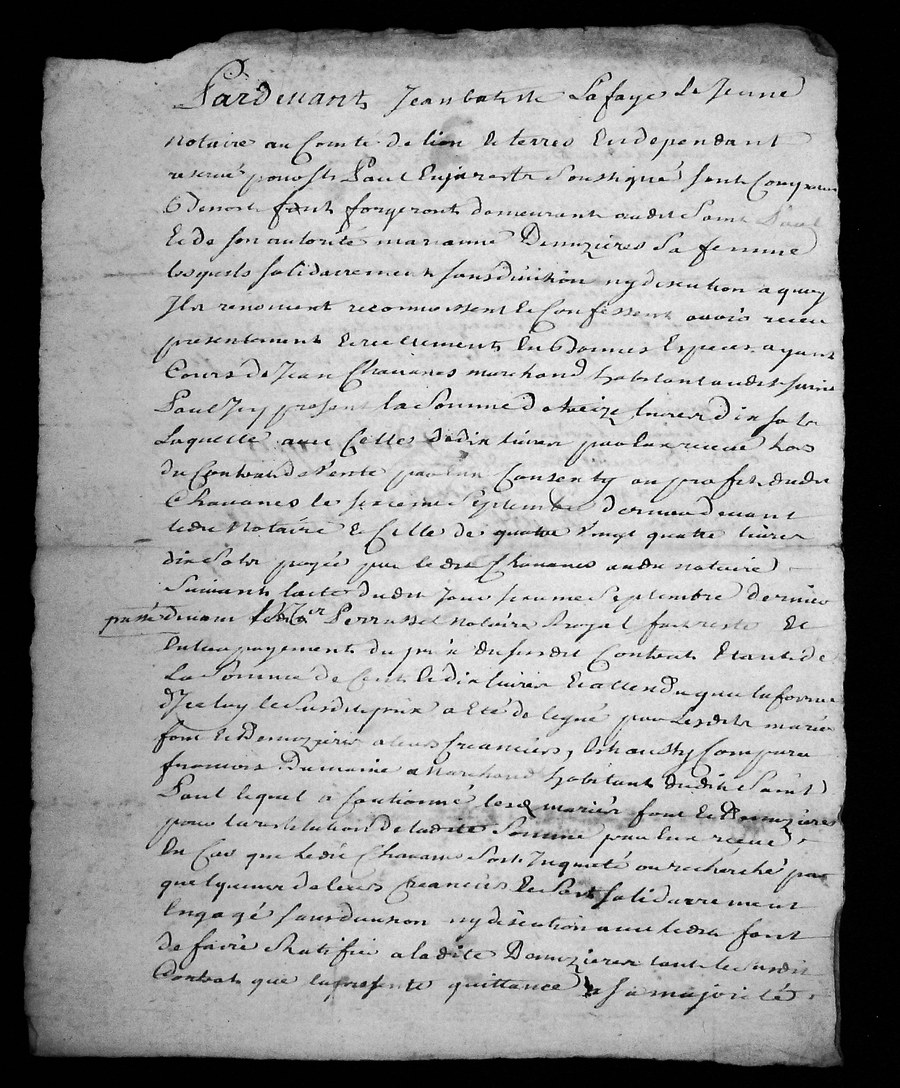 Pardevant Jeanbatiste Lafaye Le Jeune
Notaire au Comté de lion et terres En dependant
reservé pour St Paul Enjarestz Soussigné sont Comparus
Benoist font forgeront demeurant audit Saint Paul
Et de son autorité marianne Demozières Sa femme
lesquels solidairement sans division ny discution a quoy
Ils renoncent reconnoissent et Confessent avoir receu
presentement Et reellement En bonnes Especes ayant
Cours de Jean Chavanes marchand habitant audit saint
Paul Icy present la Somme de treize livres dix sols
Laquelle avec Celles de dix livres par Eux receue lors
du Contrat de Vente par Eux Consenty au profit dudit
Chavanes le seizieme Septembre dernier devant
ledit Notaire Et Celle de quatre Vingt quatre livres
dix Sols payée par ledit Chavanes audit notaire
Suivant lacte dudit Jour seizieme Septembre dernier
passé devant Perrussel Notaire Royal fait reste Et
Entier payement du prix du susdit Contrat Etant de
La Somme de Cent Et dix livres Et attendu que la forme
d'Iceluy le Susdit prix a Eté delegué par Lesdits mariés
font Et Demozières a leurs Creanciers, Est aussy Comparu
francois Dumaine Marchand habitant dudit Saint
Paul lequel a Cautionné lesd mariés font Et Demozières
pour la restitution de ladite Somme par Eux receue
En Cas que ledit Chavanes Soit Inquieté ou recherché par
quelqu'un de leurs Creanciers Et Sest solidairement
Engagé sans division ny discution avec ledit font
de faire Ratifier a ladite Demozières tant le susdit
Contrat que la presente quittance a sa majorité